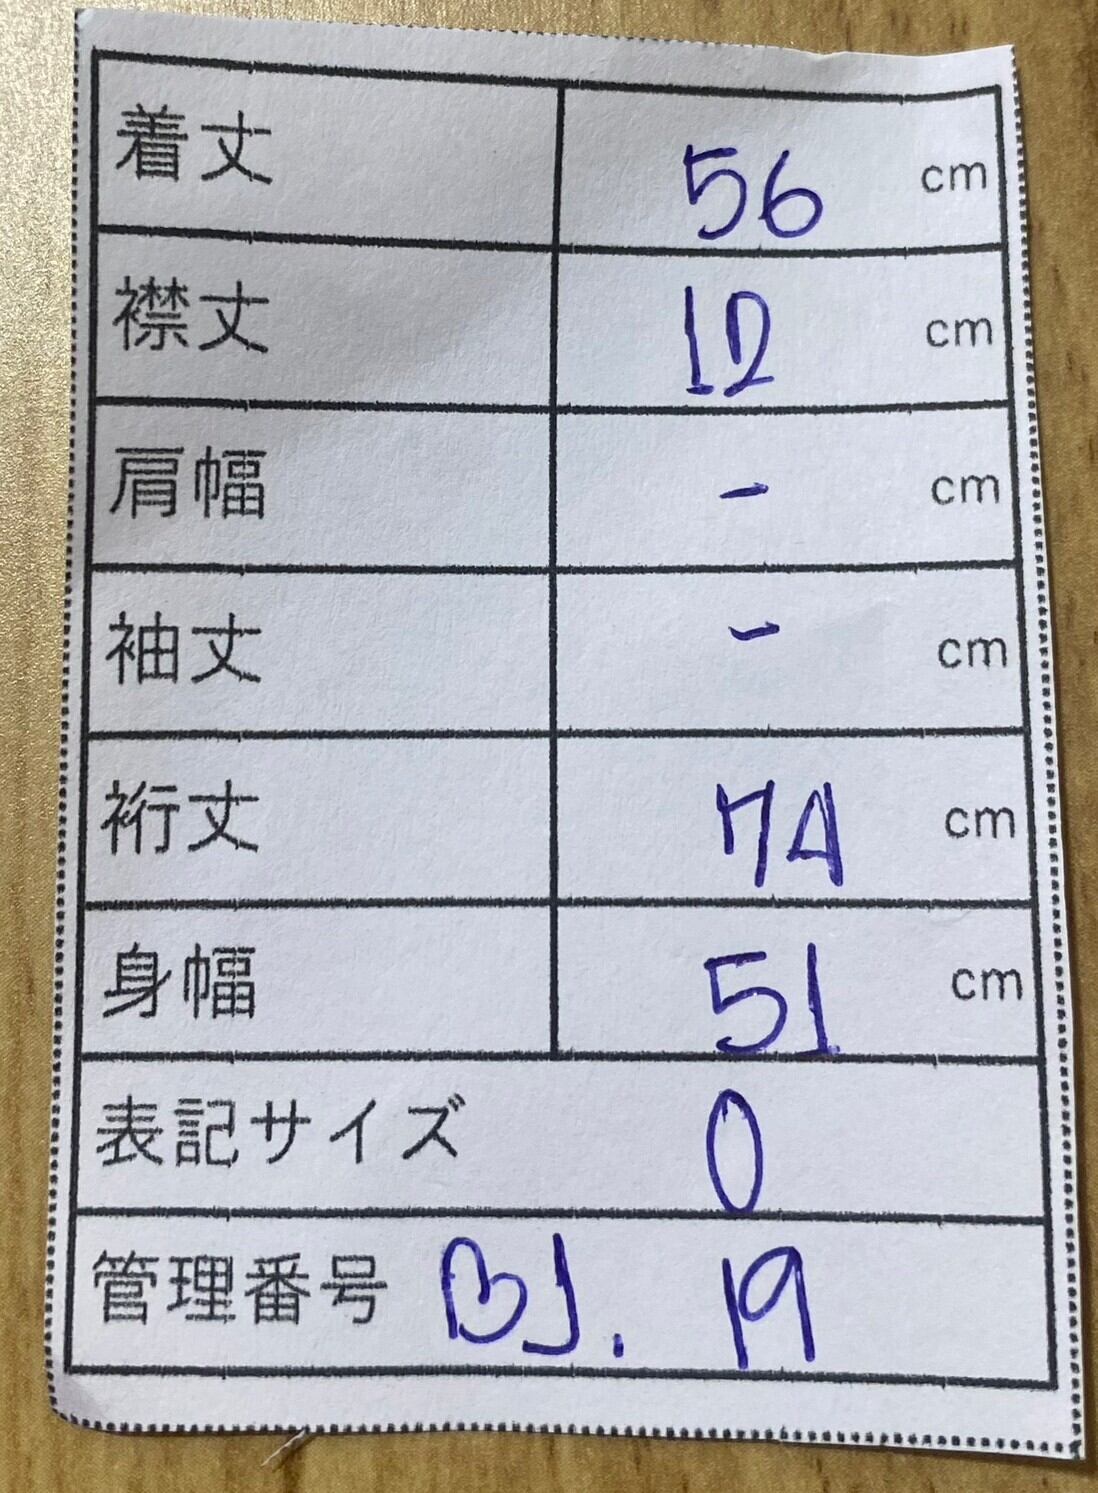 着丈 56 cm
襟丈 12 cm
肩幅 - cm
袖丈 - cm
裄丈 74 cm
身幅 51 cm
表記サイズ 0
管理番号 BJ. 19